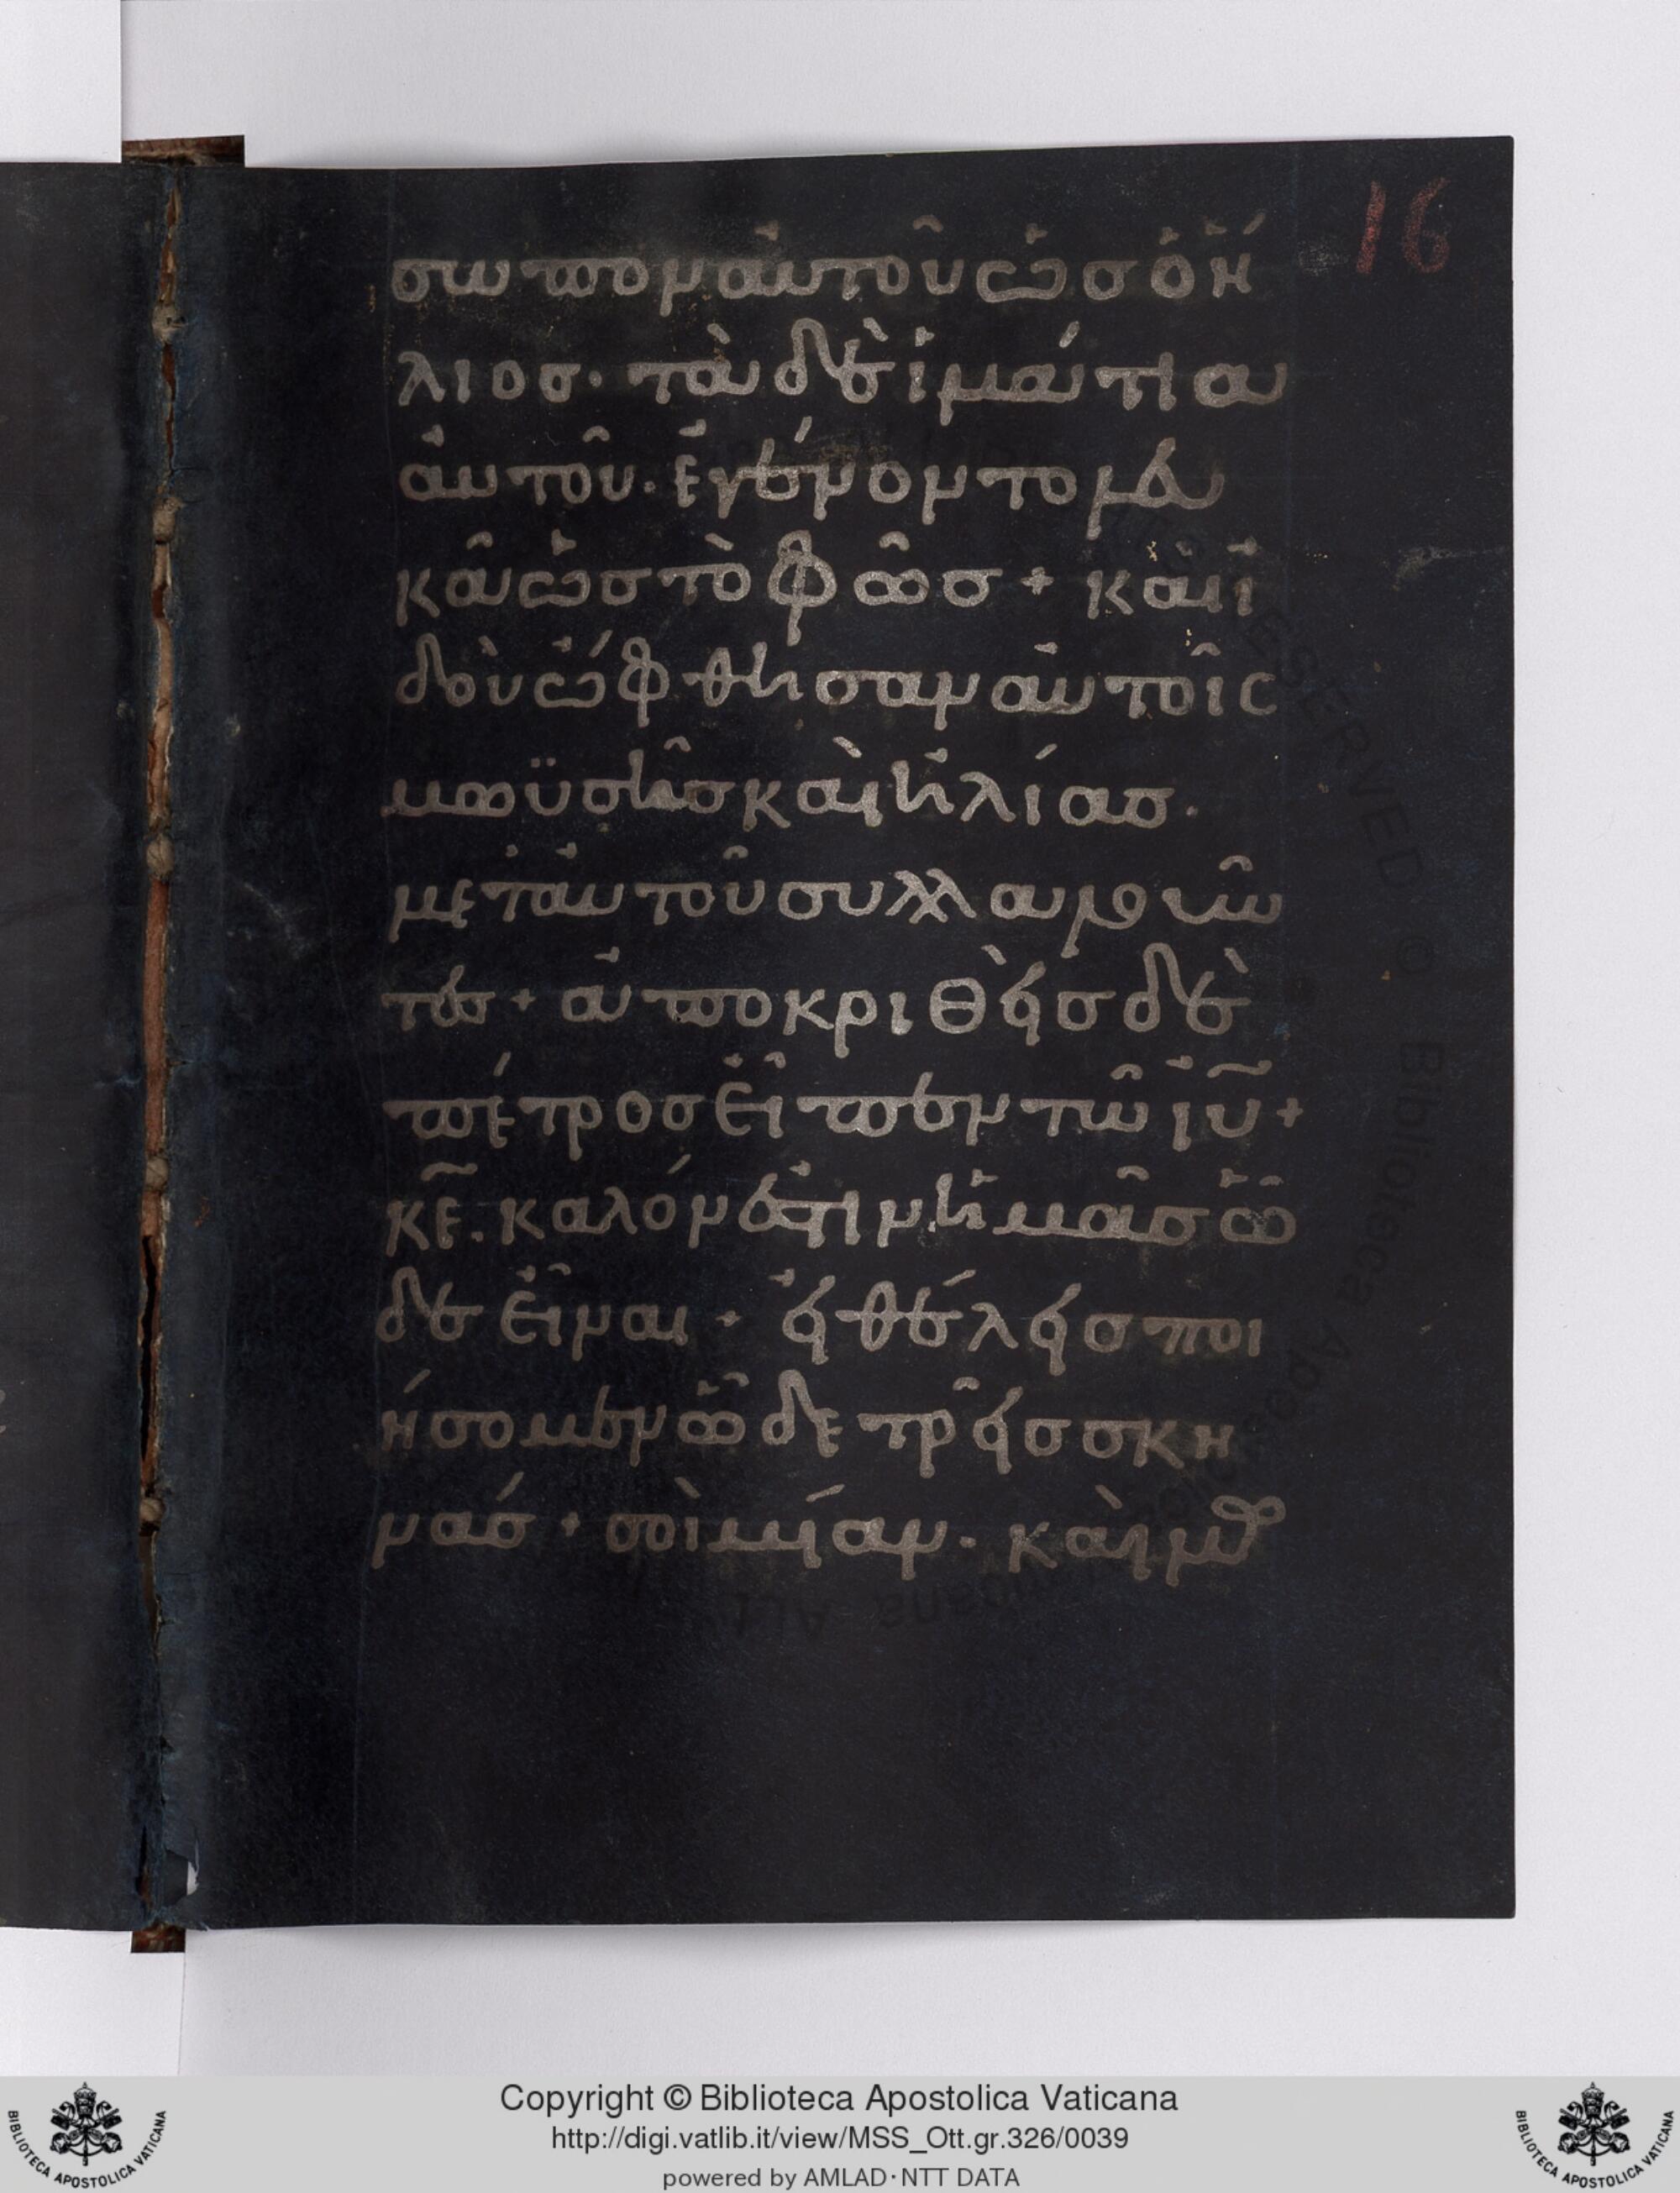 16
σωπον αὐτοῦ ὡσ ὁ ἥ
λιοσ· τὰ δὲ ἱμάτια
αὐτοῦ· ἐγένοντο λευ
κὰ ὡσ τὸ φῶσ + καὶ ἰ
δοὺ ὤφθησαν αὐτοῖς
μωϋσῆσ καὶ ἠλίασ·
μετ' αὐτοῦ συλλαλοῦν
τεσ + ἀποκριθεὶσ δὲ
πέτροσ εἶπεν τῶ ἰῦ +
κε̄. καλόν ἐστιν ἡμᾶσ ὧ
δε εἶναι + εἰ θέλεισ ποι
ήσομεν ὧδε τρεῖσ σκη
νάσ + σοὶ μίαν· καὶ μω
Copyright © Biblioteca Apostolica Vaticana
http://digi.vatlib.it/view/MSS_Ott.gr.326/0039
powered by AMLAD·NTT DATA
BIBLIOTECA APOSTOLICA VATICANA
BIBLIOTECA APOSTOLICA VATICANA